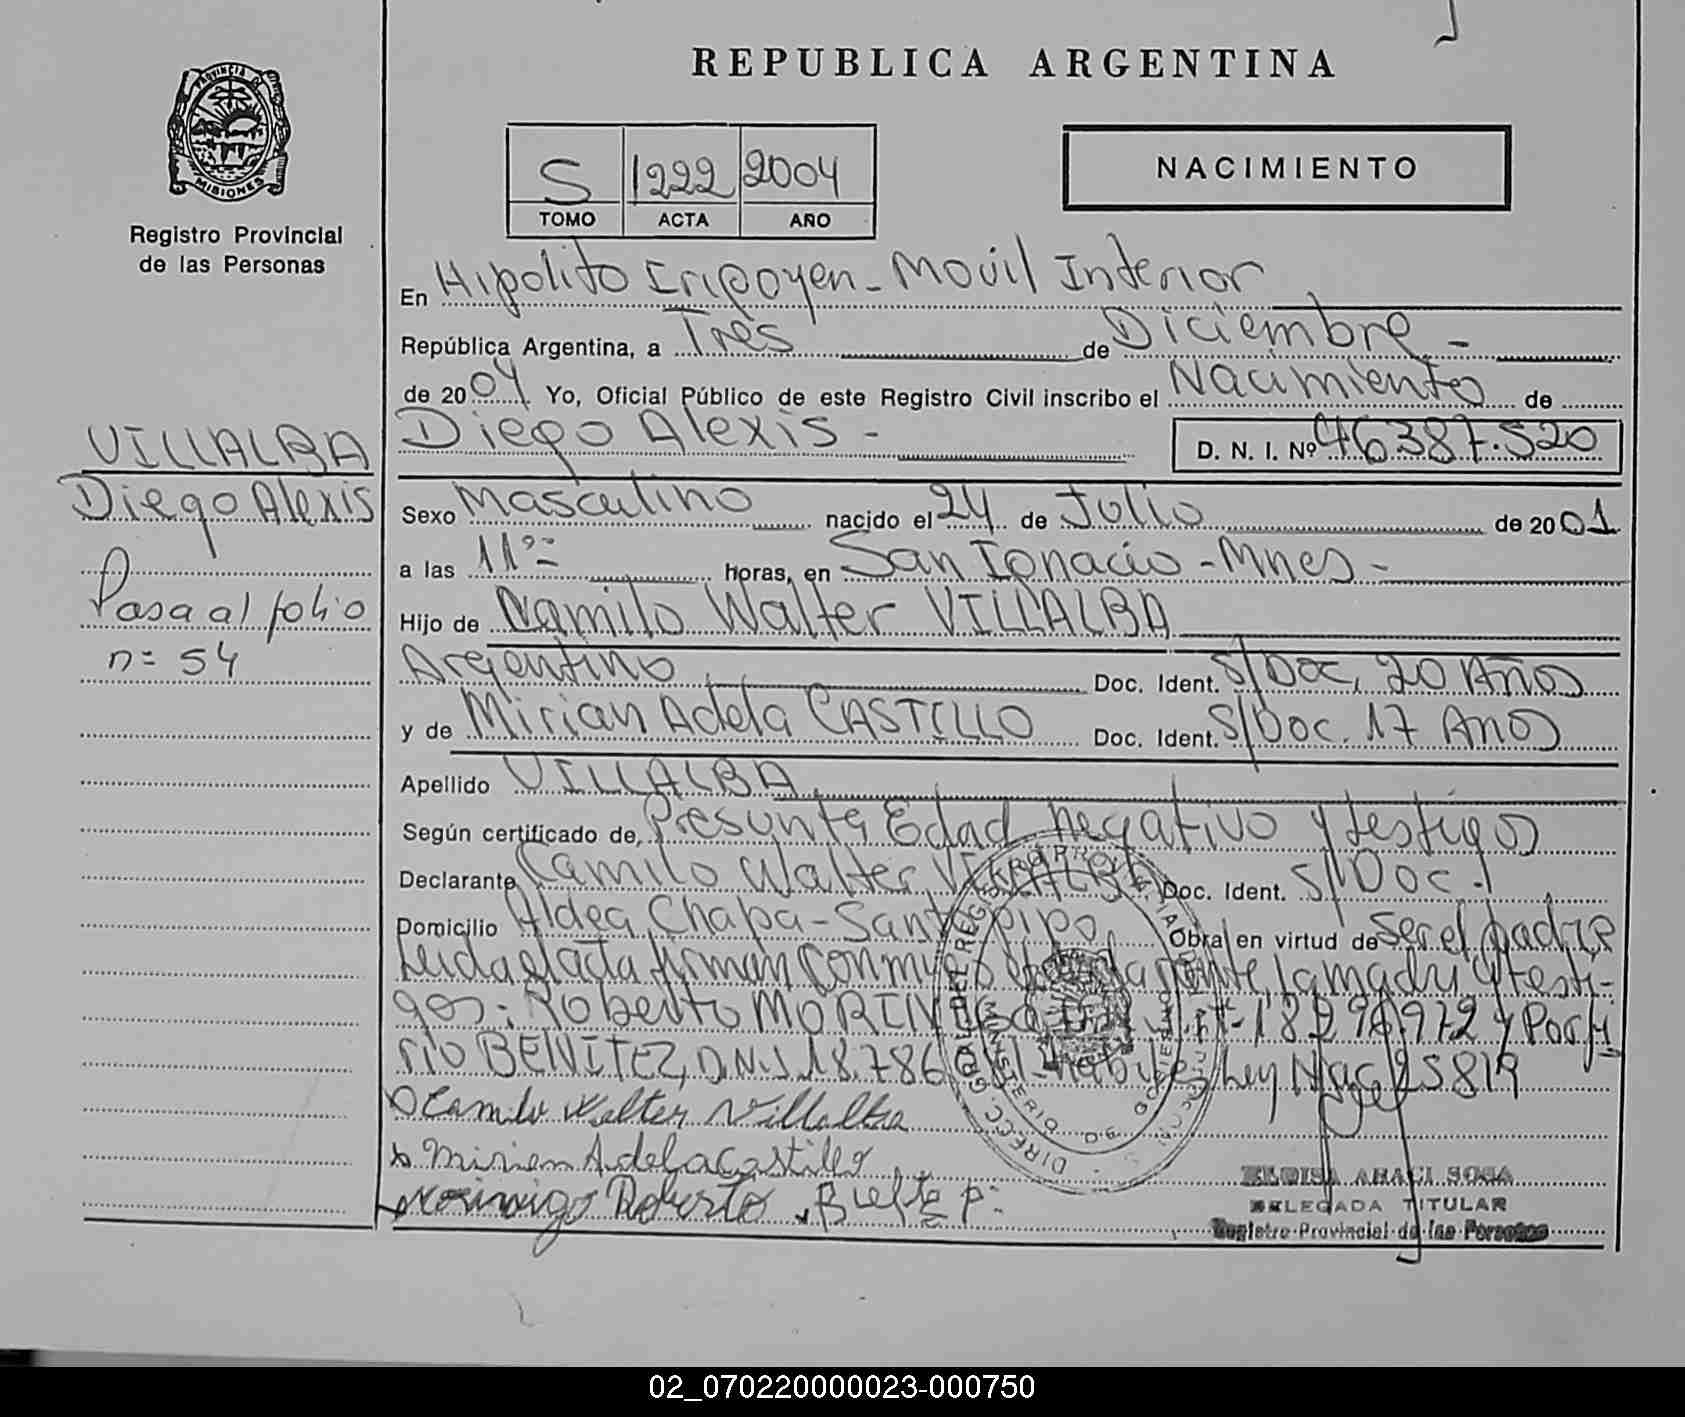 REPUBLICA ARGENTINA
PROVINCIA DE
MISIONES
Registro Provincial
de las Personas
S 1222 2004
TOMO ACTA AÑO
NACIMIENTO
En Hipolito Irigoyen - Movil Interior
República Argentina, a Tres de Diciembre -
de 2004 Yo, Oficial Público de este Registro Civil inscribo el Nacimiento de
Diego Alexis - D. N. I. Nº 46387.520
VILLALBA
Diego Alexis
Pasa al folio
n= 54
Sexo Masculino nacido el 24 de Julio de 2001
a las 11 horas, en San Ignacio - Mnes -
Hijo de Camilo Walter VILLALBA
Argentino Doc. Ident. S/Doc, 20 Años
y de Mirian Adela CASTILLO Doc. Ident. S/Doc. 17 Años
Apellido VILLALBA
Según certificado de, Presunta Edad negativo y testigos
Declarante Camilo Walter VILLALBA Doc. Ident. S/Doc.
Domicilio Aldea Chapa - Santo pipo Obra en virtud de ser el padre
Leida el acta firman conmigo el declarante la madre y testi-
gos: Roberto 18 972 y Porfi
rio BENITEZ, D.N.I 18.786 habiles Ley Nac 25819
Camilo Walter Villalba
Mirian Adela Castillo
Roberto
ELOISA ARACI SOSA
DELEGADA TITULAR
Registro Provincial de las Personas
02_070220000023-000750